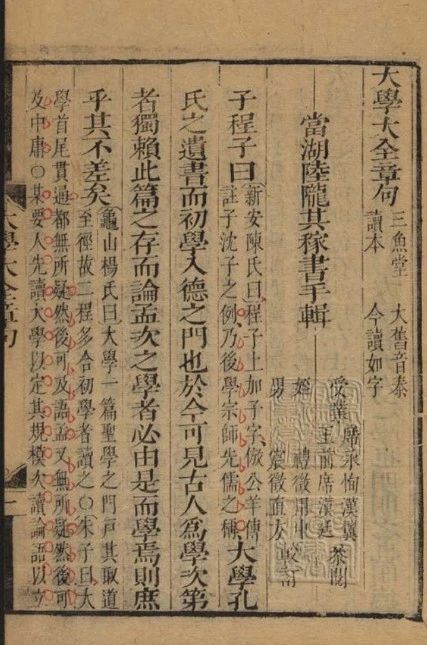 大學大全章句 三魚堂讀本 大舊音泰今讀如字
當湖陸隴其稼書手輯
受業 席永恂漢翼 王前席漢廷 叅閱
姪 禮徵用中
男 宸徵直方 較訂
子程子曰 新安陳氏曰程子上加子字倣公羊傳註子沈子之例乃後學宗師先儒之稱 大學孔
氏之遺書而初學入德之門也於今可見古人爲學次第
者獨賴此篇之存而論孟次之學者必由是而學焉則庶
乎其不差矣 龜山楊氏曰大學一篇聖學之門戶其取道至徑故二程多令初學者讀之○朱子曰大
學首尾貫通都無所疑然後可及語孟又無所疑然後可
及中庸○某要人先讀大學以定其規模次讀論語以立
大學大全章句
一